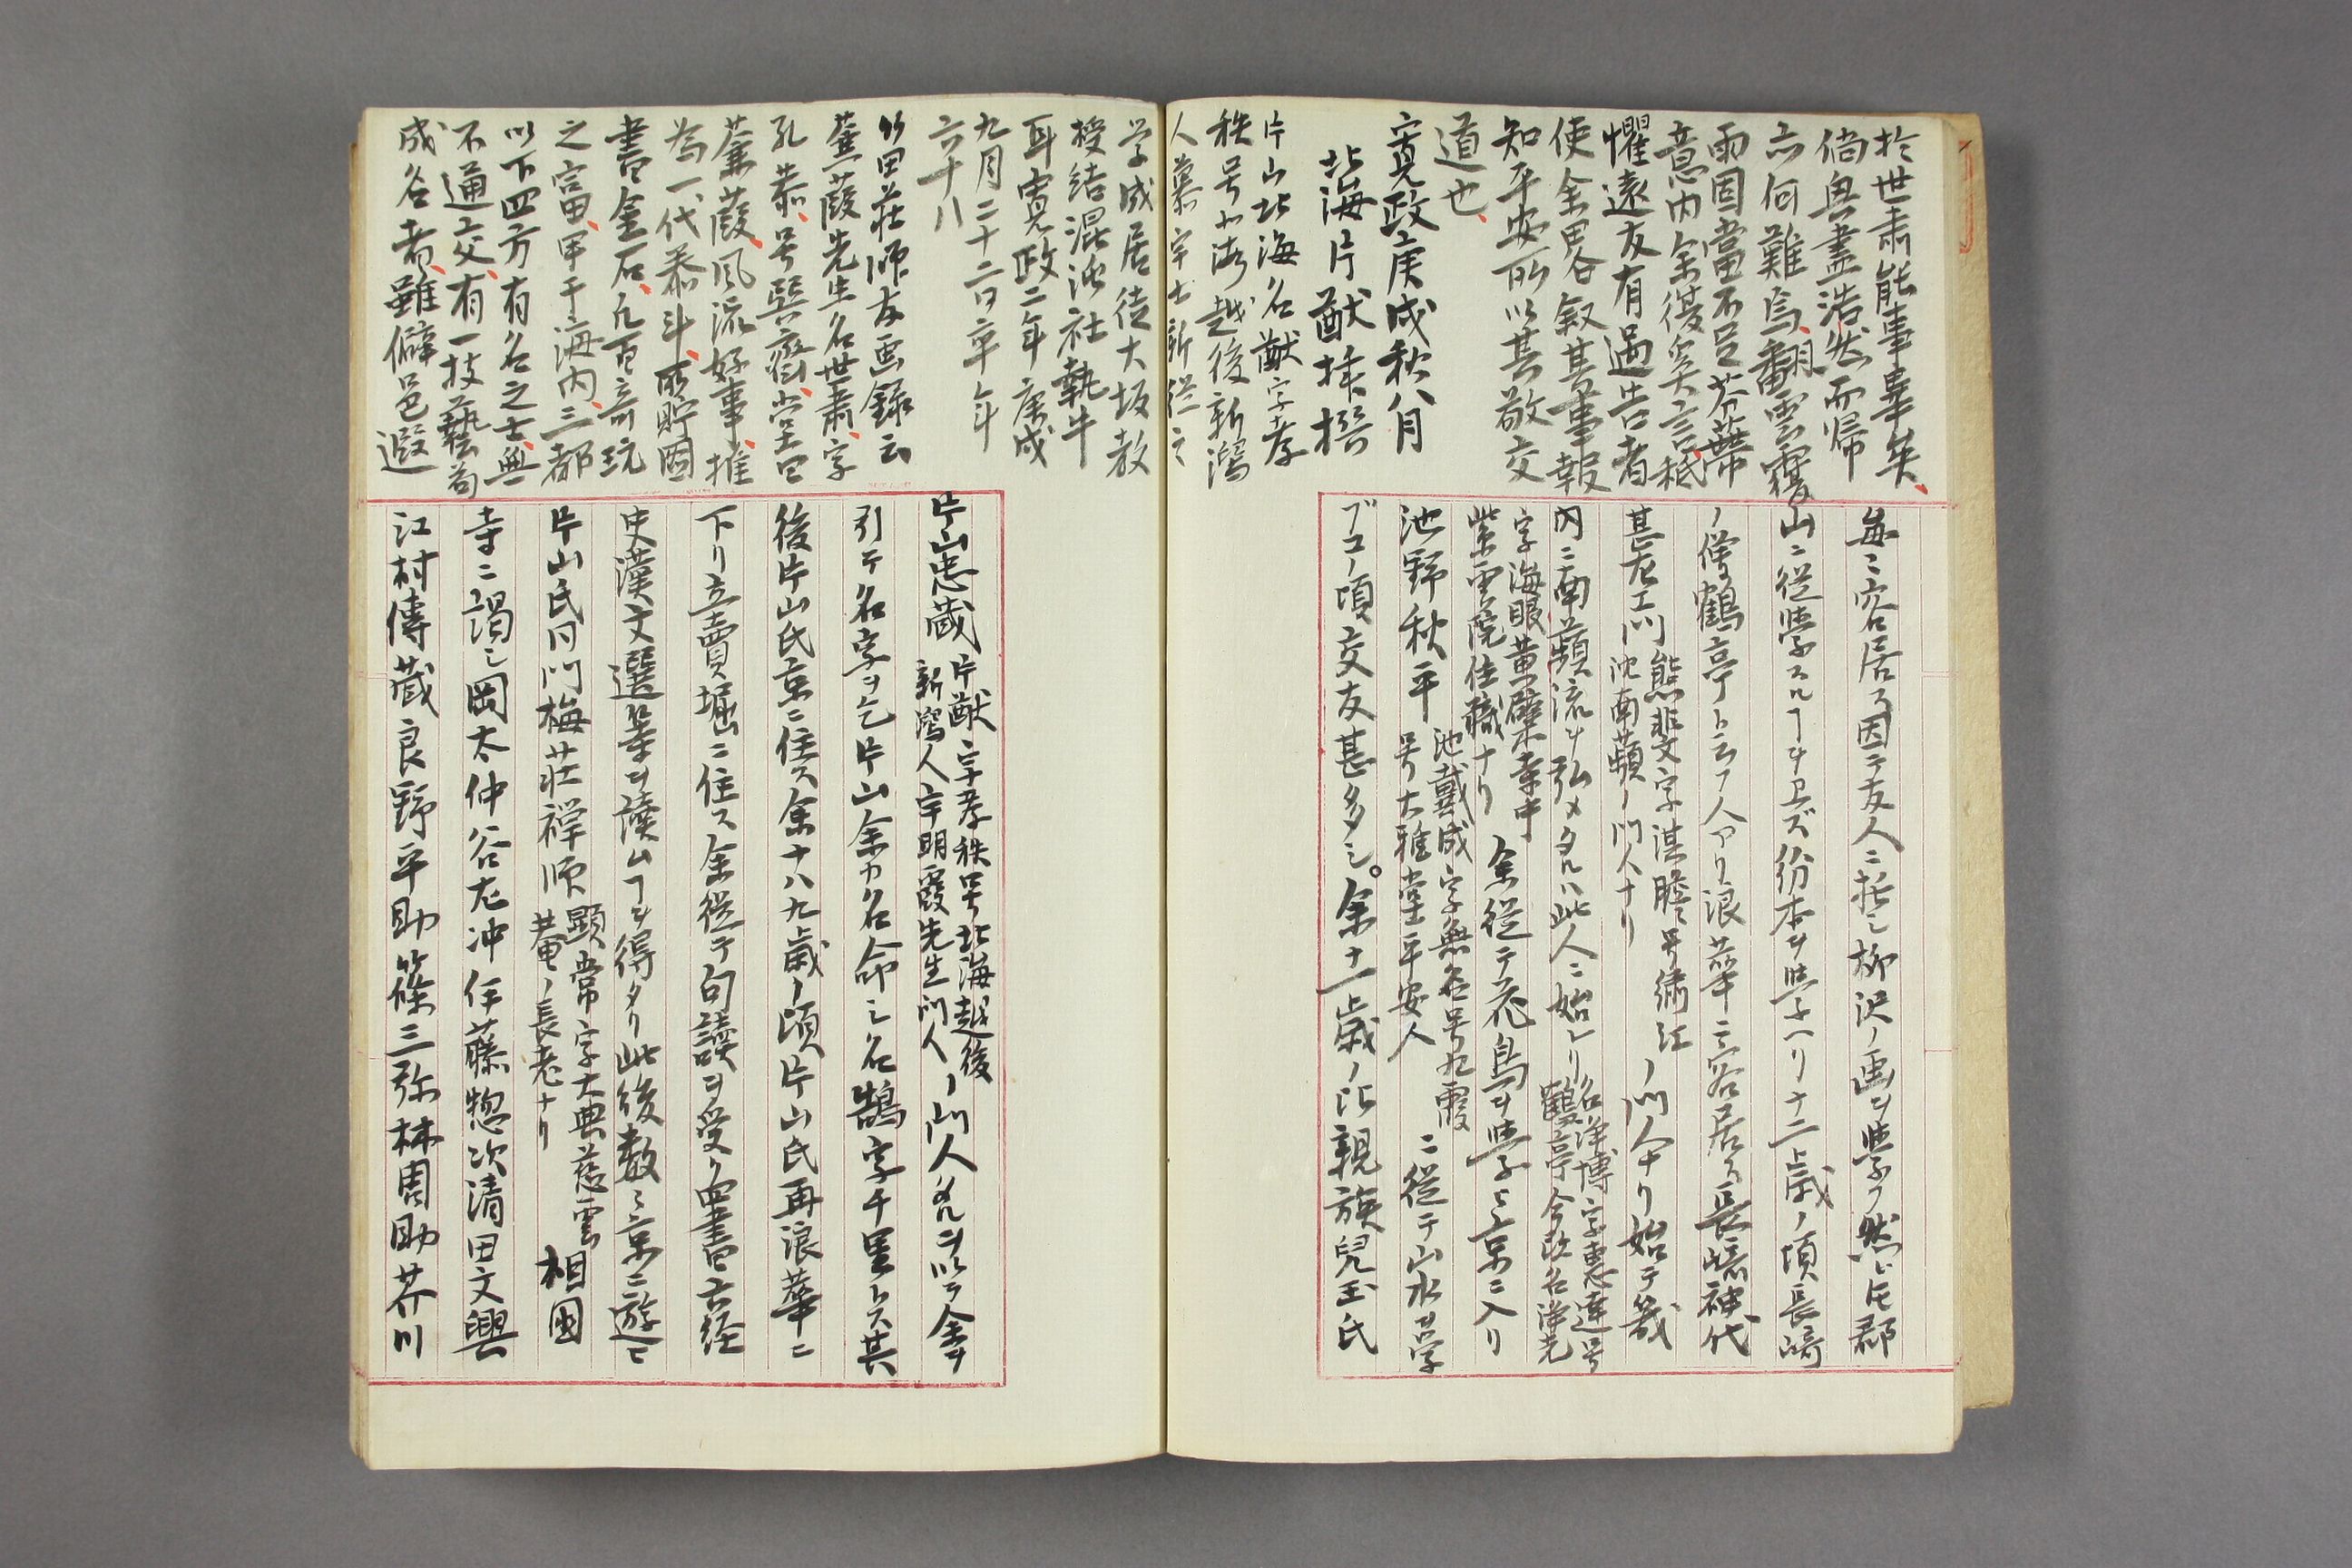 於世肅能事畢矣、
倘與盡浩然而帰
亦何難焉、翻雲覆
雨固當不足芥蔕
意内、余復奚言、祇
懼遠友有過告者
使余畧叙其事報
知平安所以其敬交
道也、
寛政庚戌秋八月
北海片猷拝撰
片山北海名猷字孝
秩号北海越後新潟
人慕宇士新従之
毎ニ客居ス因テ友人ニ託シ柳沢ノ画ヲ學フ然レ𪜈郡
山ニ従學スルヿヲヱズ份本ヲ學ヘリ十二歳ノ頃長崎
ノ僧鶴亭ト云フ人アリ浪華ニ客居ス長崎神代
甚左エ門
熊斐文字淇瞻号繍江
沈南蘋ノ門人ナリ
ノ門人ナリ始テ畿
内ニ南蘋流ヲ弘メタルハ此人ニ始レリ
名浄博字恵達号
鶴亭今改名浄光
字海眼黄檗寺中
紫雲院住職ナリ
余従テ花鳥ヲ學ミ京ニ入リ
池野秋平
池戴成字無名号九霞
号大雅堂平安人
ニ従テ山水ヲ学
ブコノ頃交友甚多シ。余十一歳ノ比親族兒玉氏
学成居徒大坂教
授結混沌社執牛
耳寛政二年庚戌
九月二十二日卒年
六十八
竹田荘師友画録云
蒹葭先生名世肅、字
孔恭、号巽齋、堂曰
蒹葭、風流好事、推
為一代泰斗、所貯圖
書金石、凡百奇玩
之富、甲于海内、三都
以下四方有名之士、無
不通交、有一技藝苟
成名者、雖僻邑遐
片山忠蔵
片猷字孝秩号北海越後
新瀉人宇明霞先生門人
ノ門人タルヲ以テ余ヲ
引テ名字ヲ乞片山余カ名命シ名鵠字千里トス其
後片山氏京ニ住ス余十八九歳ノ頃片山氏再浪華ニ
下リ立賣堀ニ住ス余従テ句讀ヲ受ケ四書六経
史漢文選等ヲ讀ムヿヲ得タリ此後数〻京ニ遊ヒ
片山氏同門梅荘禅師
顕常字大典慈雲
菴ノ長老ナリ
相国
寺ニ謁シ岡太仲谷左沖伊藤惣次清田文興
江村傳蔵良野平助篠三弥林周助芥川